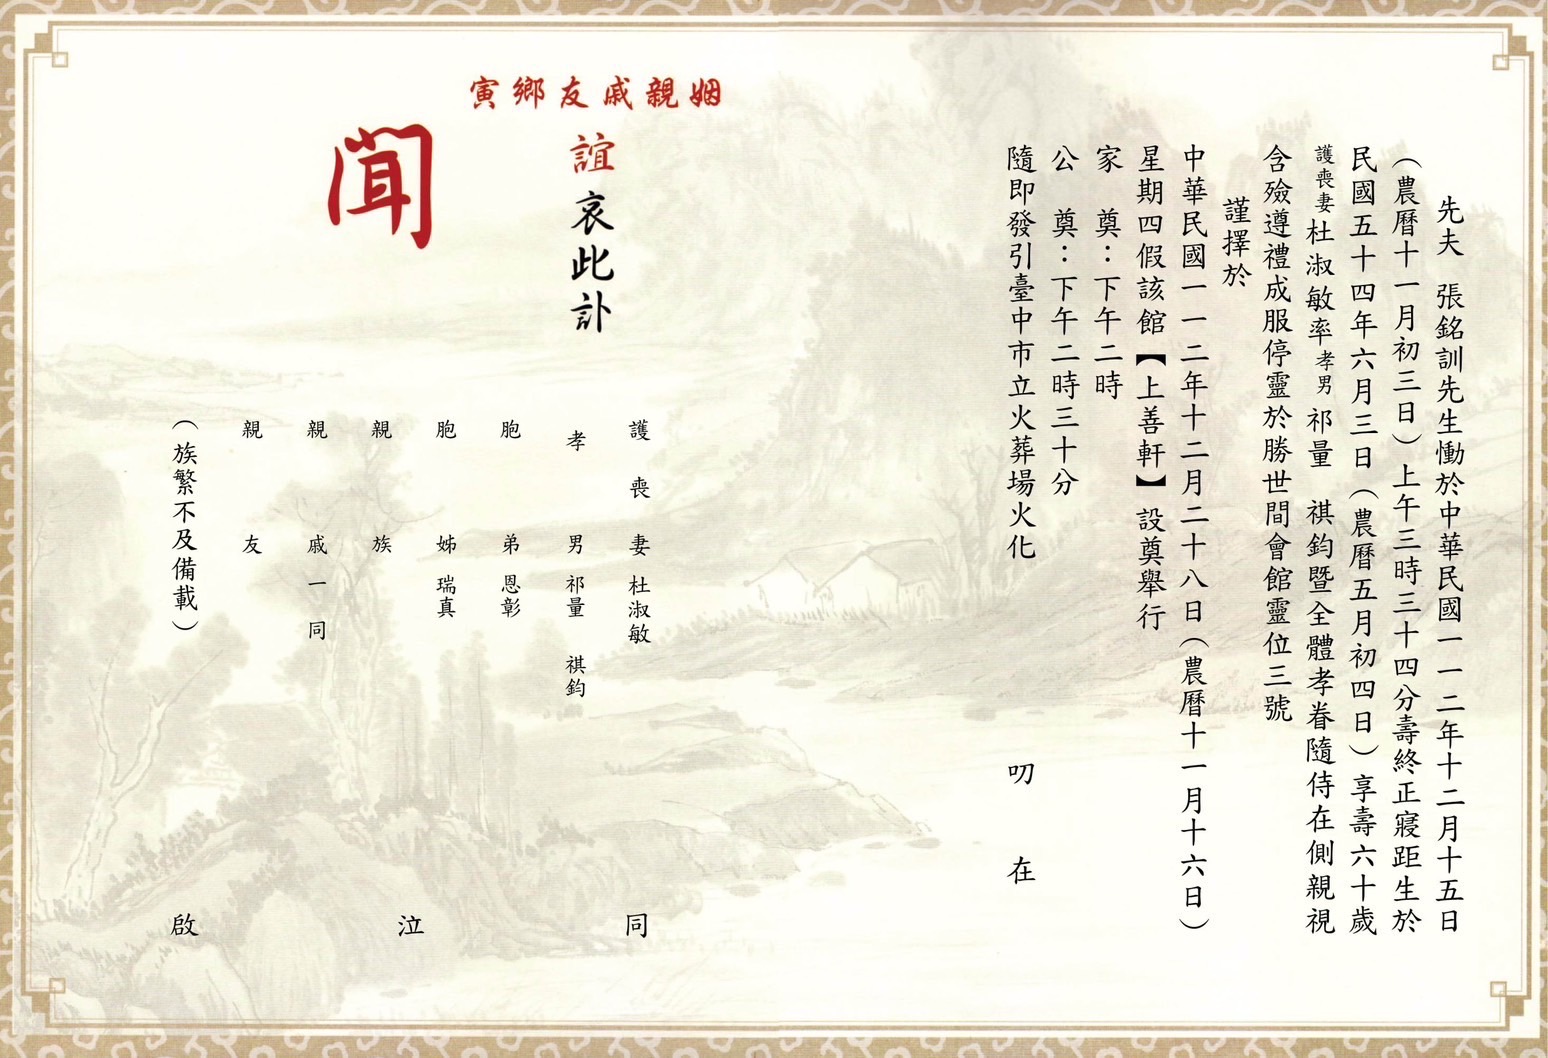 先夫　張銘訓先生慟於中華民國一一二年十二月十五日
（農曆十一月初三日）上午三時三十四分壽終正寢距生於
民國五十四年六月三日（農曆五月初四日）享壽六十歲
護喪妻杜淑敏率孝男祁量　祺鈞暨全體孝眷隨侍在側親視
含殮遵禮成服停靈於勝世間會館靈位三號
謹擇於
中華民國一一二年十二月二十八日（農曆十一月十六日）
星期四假該館【上善軒】設奠舉行
家　奠：下午二時
公　奠：下午二時三十分
隨即發引臺中市立火葬場火化
叨在
姻親戚友鄉寅
誼哀此訃
聞
護喪妻　杜淑敏
孝男　祁量　祺鈞
胞弟　恩彰
胞姊　瑞真
親族
親戚一同
親友
（族繁不及備載）
同泣啟